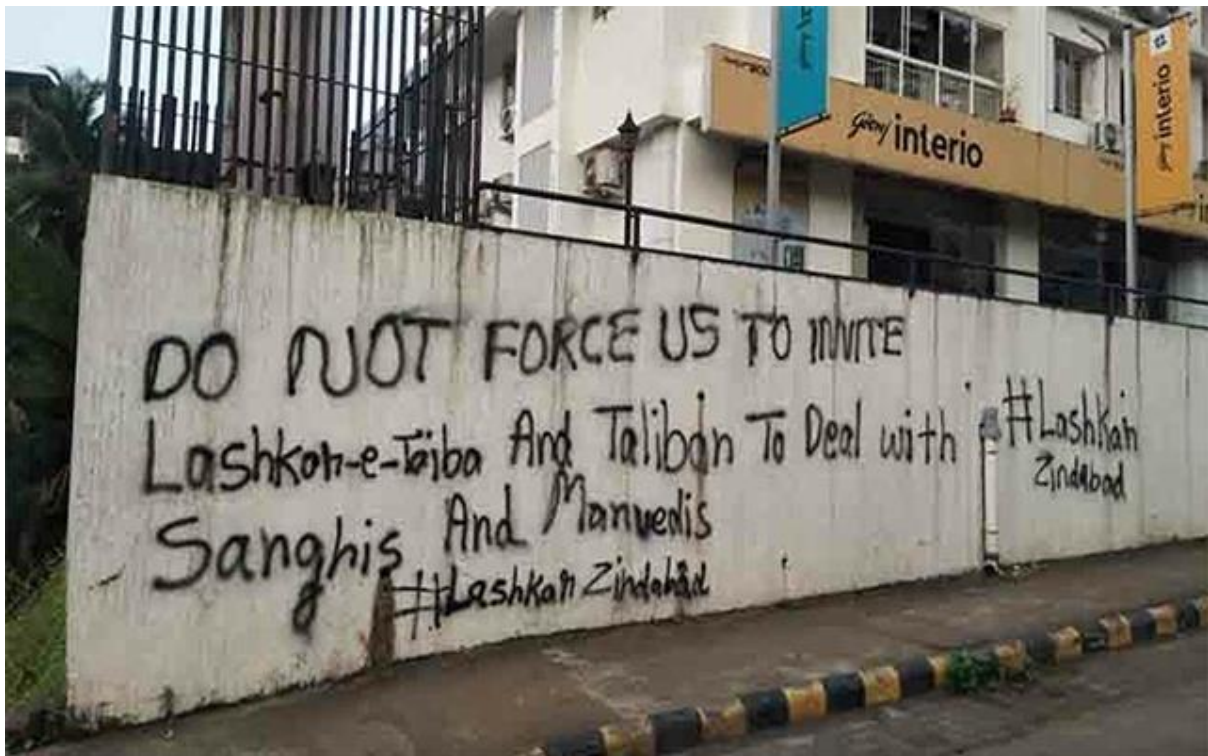 Godrej interio
interio
DO NOT FORCE US TO INVITE
Lashkar-e-Taiba And Taliban To Deal with
Sanghis And Manvedis
#Lashkar Zindabad
#Lashkar
Zindabad